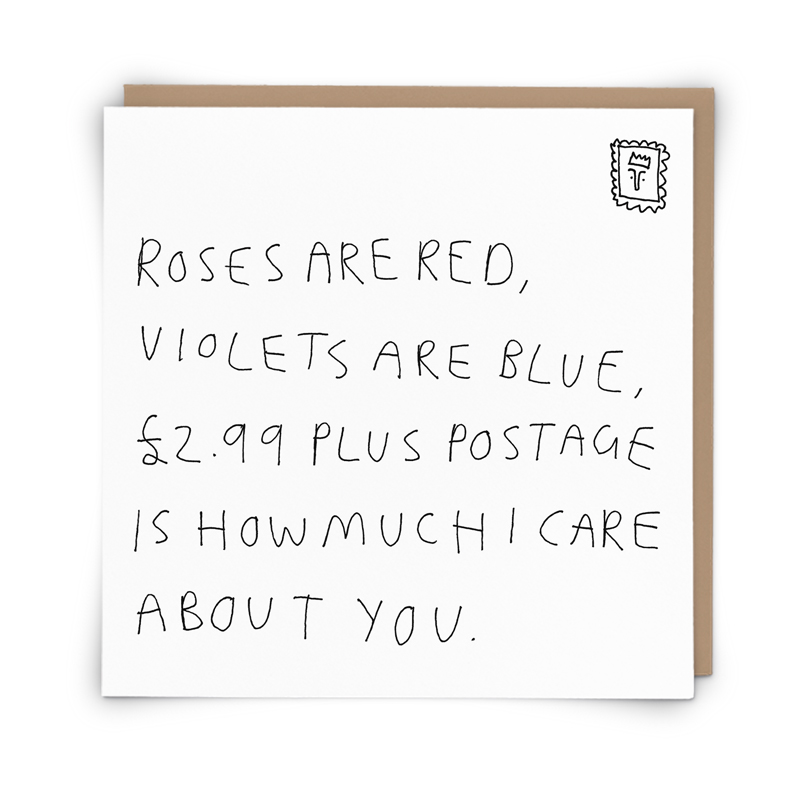 ROSES ARE RED,
VIOLETS ARE BLUE,
£2.99 PLUS POSTAGE
IS HOW MUCH I CARE
ABOUT YOU.